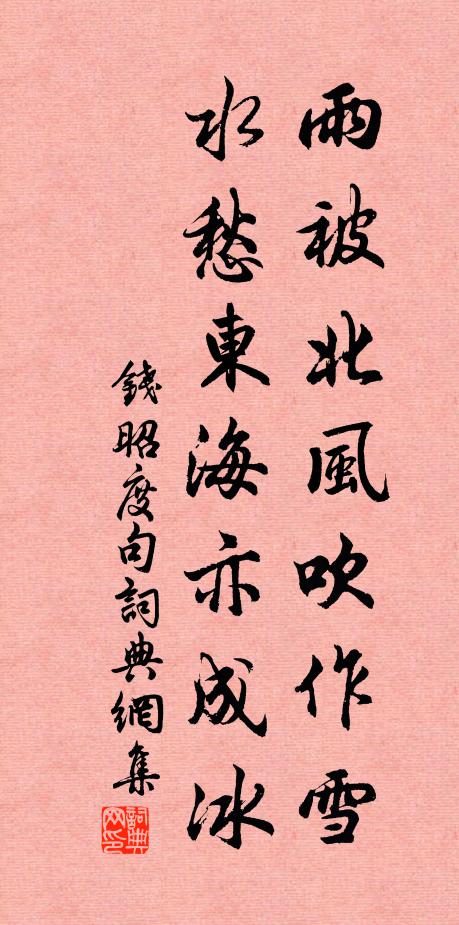 雨被北風吹作雪
水愁東海亦成冰
錢昭度句詞典網集
詞典网印